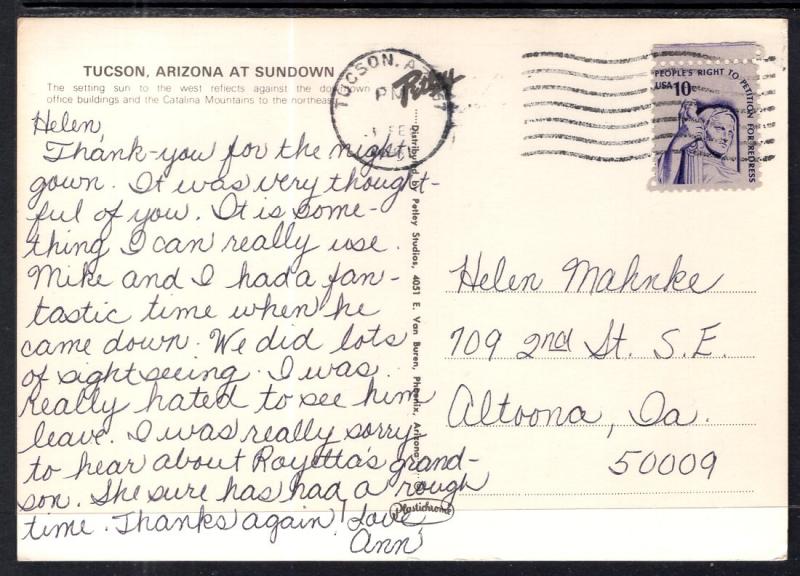 TUCSON, ARIZONA AT SUNDOWN
The setting sun to the west reflects against the downtown
office buildings and the Catalina Mountains to the northeast.
Helen,
Thank-you for the night
gown. It was very thought-
ful of you. It is some-
thing I can really use.
Mike and I had a fan-
tastic time when he
came down. We did lots
of sightseeing. I was
really hated to see him
leave. I was really sorry
to hear about Royetta's grand-
son. She sure has had a rough
time. Thanks again! Love,
Ann
Distributed by Petley Studios, 4051 E. Van Buren, Phoenix, Arizona
Plastichrome
Petley
TUCSON, A
PM
FE
PEOPLE'S RIGHT TO PETITION FOR REDRESS
USA 10c
Helen Mahnke
709 2nd St. S.E.
Altoona, Ia.
50009